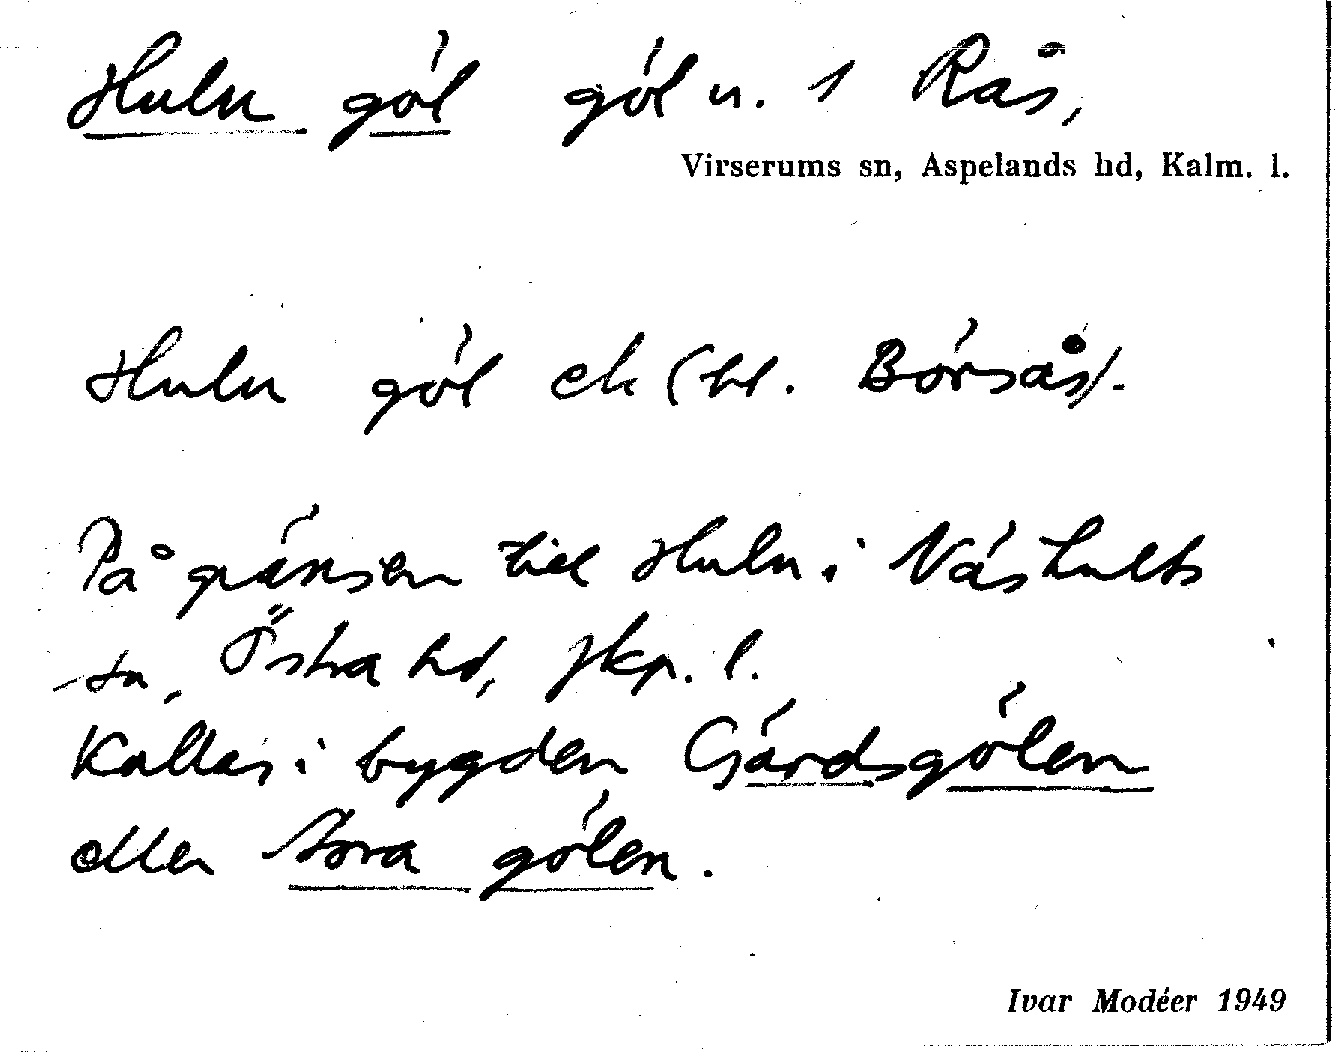 Hulu göl göl u. 1 Rås,
Virserums sn, Aspelands hd, Kalm. l.
Hulu göl ek (bl. Börsås).
På gränsen till Hulu i Näshults
sn, Östra hd, Jkp. l.
Kallas i bygden Gårdsgölen
eller Stora gölen.
Ivar Modéer 1949